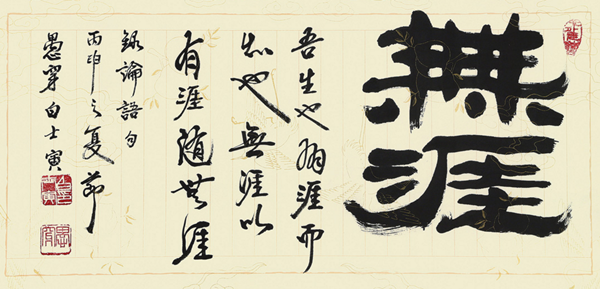 無涯
吾生也有涯而
知也無涯以
有涯隨無涯
錄論語句
丙申之夏節
愚白士寅